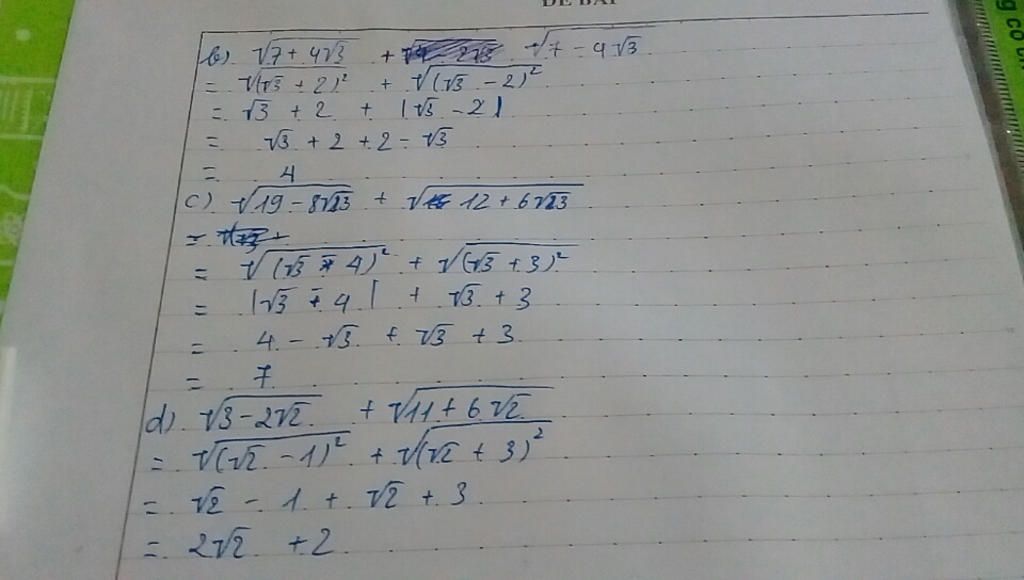 ĐỀ BÀI
b) √(7 + 4√3) + √(7 - 4√3)
= √((√3 + 2)²) + √((√3 - 2)²)
= √3 + 2 + |√3 - 2|
= √3 + 2 + 2 - √3
= 4
c) √(19 - 8√3) + √(12 + 6√3)
= √((√3 - 4)²) + √((√3 + 3)²)
= |√3 - 4| + √3 + 3
= 4 - √3 + √3 + 3
= 7
d) √(3 - 2√2) + √(11 + 6√2)
= √((√2 - 1)²) + √((√2 + 3)²)
= √2 - 1 + √2 + 3
= 2√2 + 2